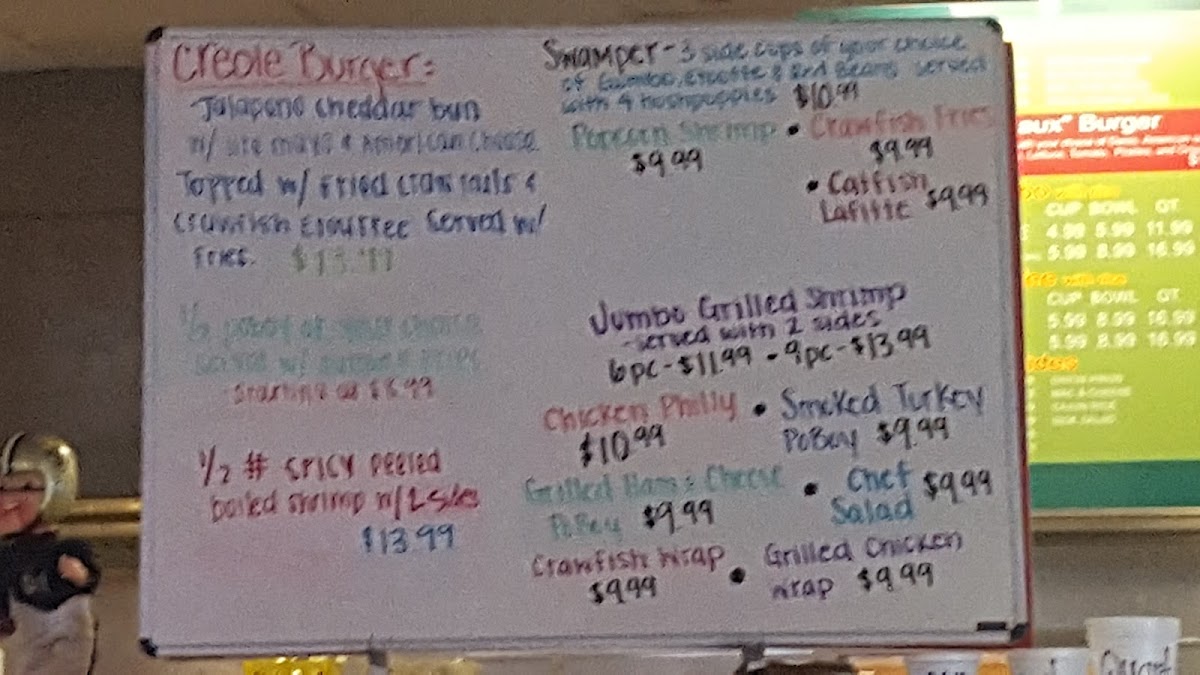 Creole Burger:
Jalapeno Cheddar bun
w/ mayo & American Cheese
Topped w/ Fried craw tails &
Crawfish Etouffee Served w/
Fries. $13.99
1/2 poboy of your choice
served w/
Starting at
1/2 # SPICY peeled
boiled shrimp w/ 2 sides
$13.99
Swamper - 3 side cups of your choice
of Gumbo, etouffe & Red Beans served
with 4 hushpuppies $10.99
Popcorn Shrimp • Crawfish Fries
$9.99 $9.99
• Catfish
Lafitte $9.99
Jumbo Grilled Shrimp
- served with 2 sides
6pc - $11.99 - 9pc - $13.99
Chicken Philly • Smoked Turkey
$10.99 PoBoy $9.99
Grilled Ham & Cheese • Chef
PoBoy $9.99 Salad $9.99
Crawfish Wrap • Grilled Chicken
$9.99 Wrap $9.99
aux" Burger
CUP BOWL QT
4.99 8.99 11.99
5.99 8.99 16.99
with rice
CUP BOWL QT
5.99 8.99 16.99
5.99 8.99 16.99